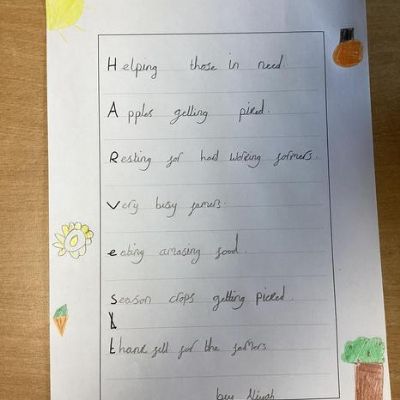 Helping those in need.
Apples getting piked.
Resting for hard working formers.
Very busy famers.
eating amazing food.
Season crops getting picked.
thank full for the farmers
by Aliyah